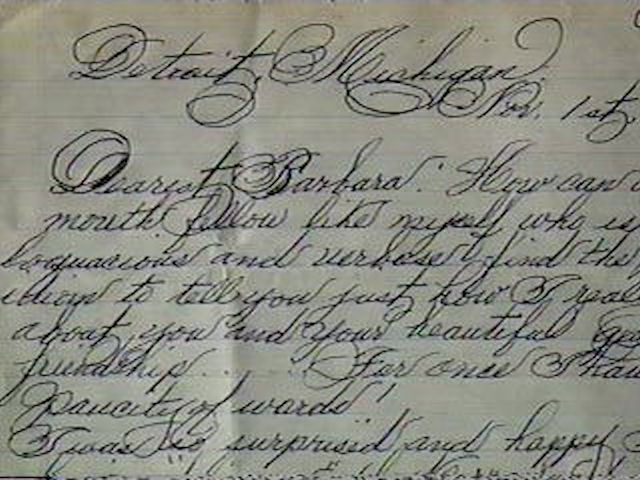 Detroit, Michigan.
Nov. 1st,
Dearest Barbara: How can
mouth fellow like myself who is
loquacious and verbose find the
idiom to tell you just how I real
about you and your beautiful
friendship . . . . . For once I hav
paucity of words!
I was so surprised and happy